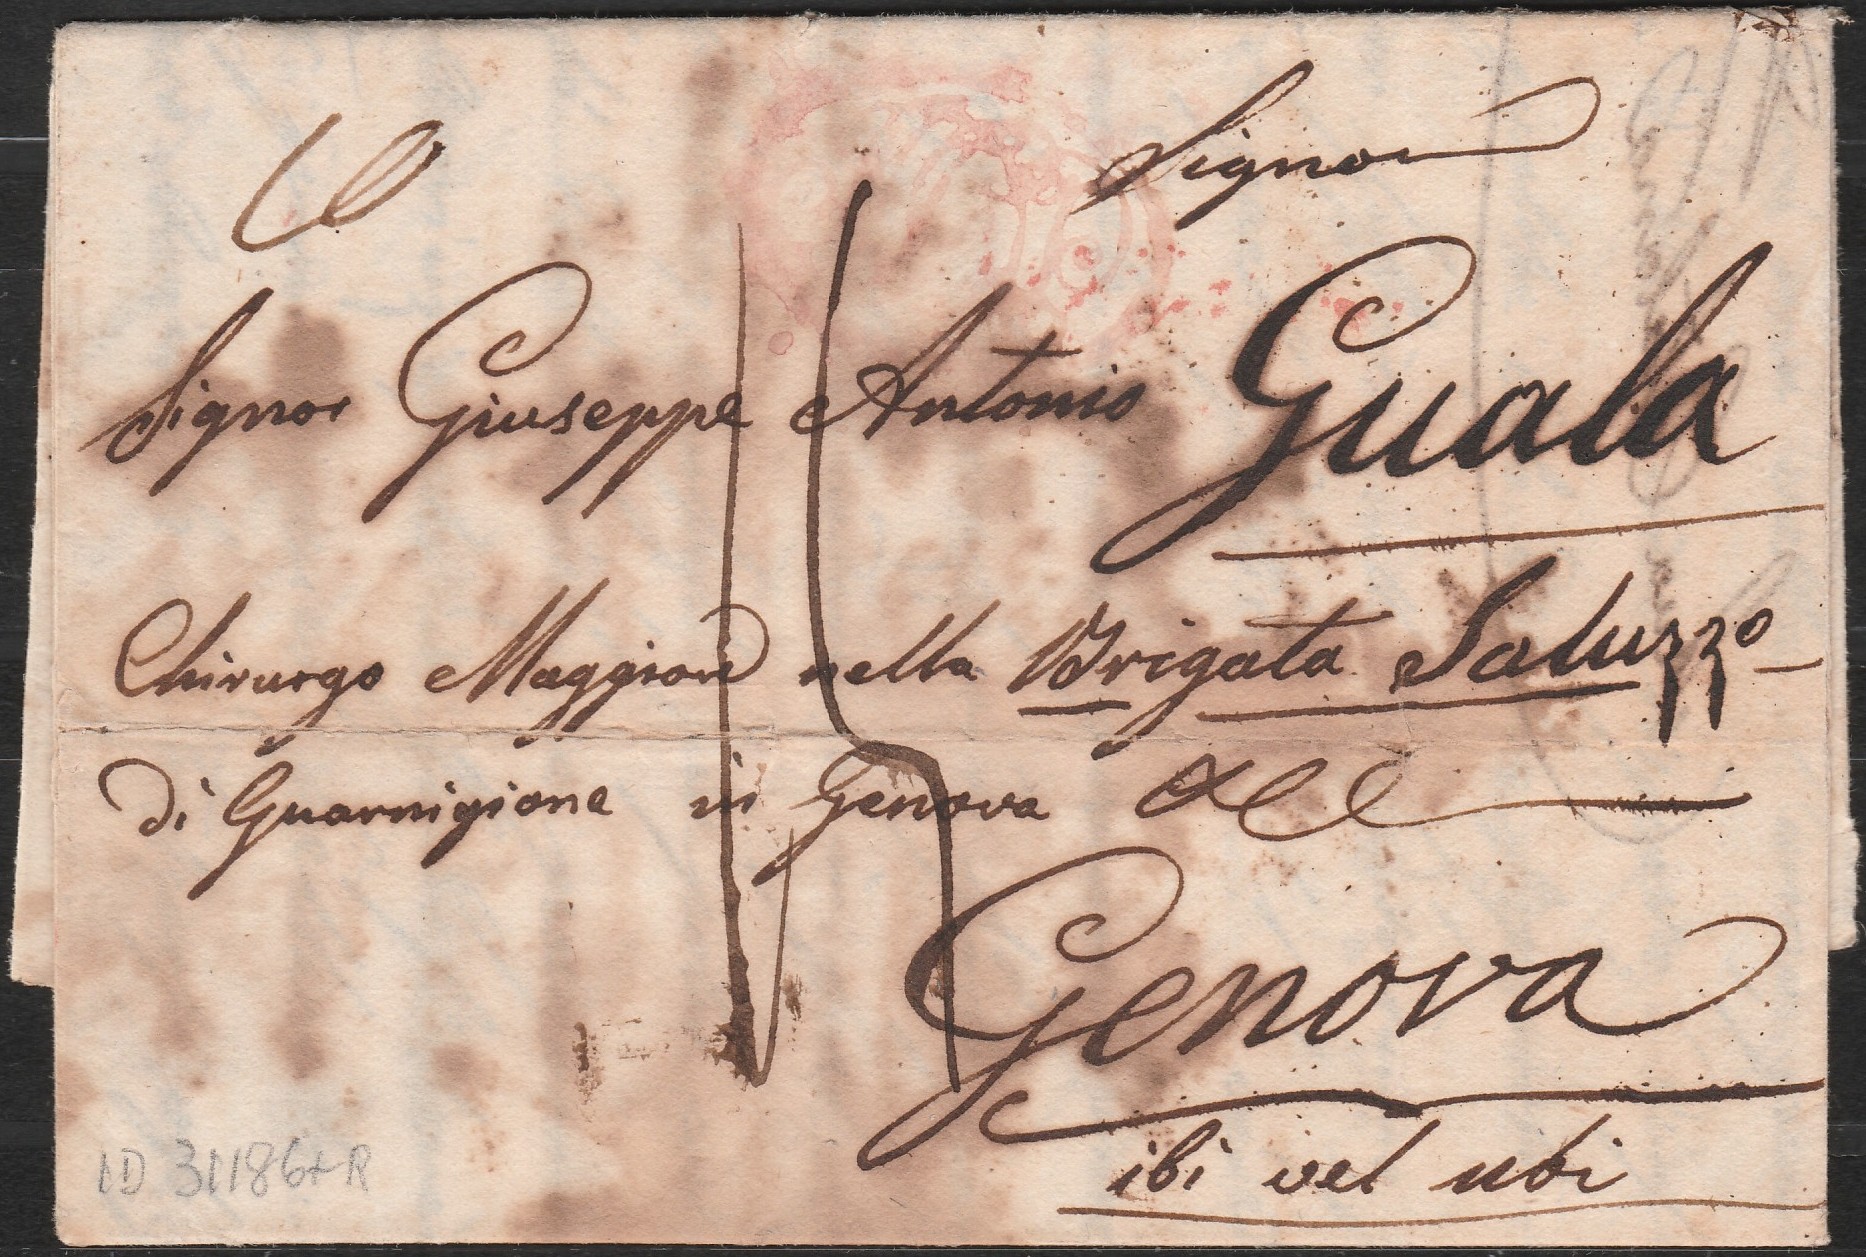 Signor
Signor Giuseppe Antonio Guala
Chirurgo Maggiore nella Brigata Saluzzo
di Guarnigione in Genova
Genova
ibi vel ubi
15
ID 31186+R